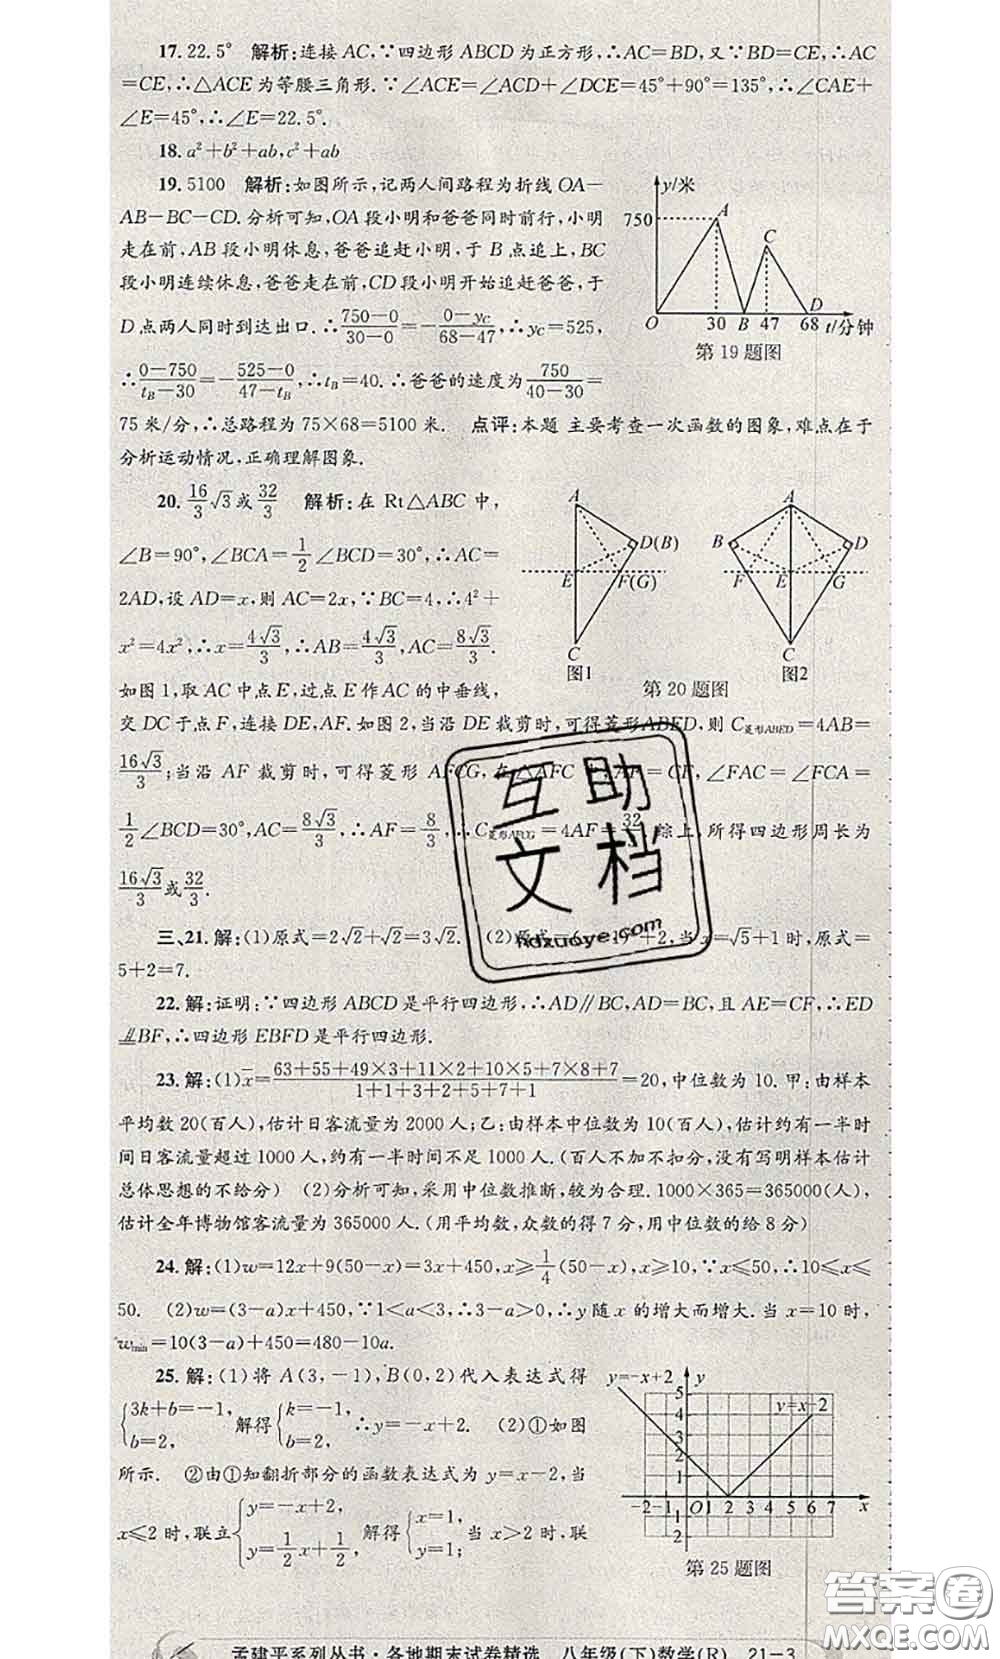 17. 22.5° 解析:连接 AC,∵四边形 ABCD 为正方形,∴AC=BD,又∵BD=CE,∴AC
=CE,∴△ACE 为等腰三角形.∵∠ACE=∠ACD+∠DCE=45°+90°=135°,∴∠CAE+
∠E=45°,∴∠E=22.5°.
18. a²+b²+ab,c²+ab
19. 5100 解析:如图所示,记两人间路程为折线 OA—
AB—BC—CD.分析可知,OA 段小明和爸爸同时前行,小明
走在前,AB 段小明休息,爸爸追赶小明,于 B 点追上,BC
段小明连续休息,爸爸走在前,CD 段小明开始追赶爸爸,于
D 点两人同时到达出口.∴(750-0)/(30-0)=-(0-y_C)/(68-47),∴y_C=525,
∴(0-750)/(t_B-30)=-(525-0)/(47-t_B),∴t_B=40.∴爸爸的速度为750/(40-30)=
y/米
750
A
C
O 30 B 47 68 D t/分钟
第 19 题图
75 米/分,∴总路程为 75×68=5100 米. 点评:本题 主要考查一次函数的图象,难点在于
分析运动情况,正确理解图象.
20. 16/3√3或32/3 解析:在 Rt△ABC 中,
∠B=90°,∠BCA=1/2∠BCD=30°,∴AC=
2AD,设 AD=x,则 AC=2x,∵BC=4,∴4²+
x²=4x²,∴x=4√3/3,∴AB=4√3/3,AC=8√3/3.
如图 1,取 AC 中点 E,过点 E 作 AC 的中垂线,
A
D(B)
E
F(G)
C
图1
A
B
D
F
E
G
C
图2
第 20 题图
交 DC 于点 F,连接 DE,AF.如图 2,当沿 DE 裁剪时,可得菱形 ABED,则 C菱形ABED=4AB=
16√3/3;当沿 AF 裁剪时,可得菱形 AFCG,在△AFC 中,AF=CF,∠FAC=∠FCA=
1/2∠BCD=30°,AC=8√3/3,∴AF=8/3,∴C菱形AFCG=4AF=32/3.综上,所得四边形周长为
16√3/3或32/3.
三、21. 解:(1)原式=2√2+√2=3√2. (2)原式= +2,当 x=√5+1 时,原式=
5+2=7.
22. 解:证明:∵四边形 ABCD 是平行四边形,∴AD∥BC,AD=BC,且 AE=CF,∴ED
∥BF,∴四边形 EBFD 是平行四边形.
23. 解:(1)x̄=(63+55+49×3+11×2+10×5+7×8+7)/(1+1+3+2+5+7+1)=20,中位数为 10.甲:由样本
平均数 20(百人),估计日客流量为 2000 人;乙:由样本中位数为 10(百人),估计约有一半时
间日客流量超过 1000 人,约有一半时间不足 1000 人.(百人不加不扣分,没有写明样本估计
总体思想的不给分) (2)分析可知,采用中位数推断,较为合理.1000×365=365000(人),
估计全年博物馆客流量为 365000 人.(用平均数,众数的得 7 分,用中位数的给 8 分)
24. 解:(1)w=12x+9(50-x)=3x+450,x≥1/4(50-x),x≥10,∵x≤50,∴10≤x≤
50. (2)w=(3-a)x+450,∵1<a<3,∴3-a>0,∴y 随 x 的增大而增大.当 x=10 时,
w_min=10(3-a)+450=480-10a.
25. 解:(1)将 A(3,-1),B(0,2)代入表达式得
{3k+b=-1, b=2, 解得{k=-1, b=2, ∴y=-x+2. (2)①如图
所示. ②由①知翻折部分的函数表达式为 y=x-2,当
x≤2 时,联立{y=-x+2, y=1/2x+1/2, 解得{x=1, y=1; 当 x>2 时,联
y=-x+2
y
y=x-2
5
4
3
2
1
-2 -1 O 1 2 3 4 5 6 7 x
1
2
第 25 题图
互助
文档
hdzuoye.com
答案卷
孟建平系列丛书·各地期末试卷精选 八年级(下)数学(R) 21—3